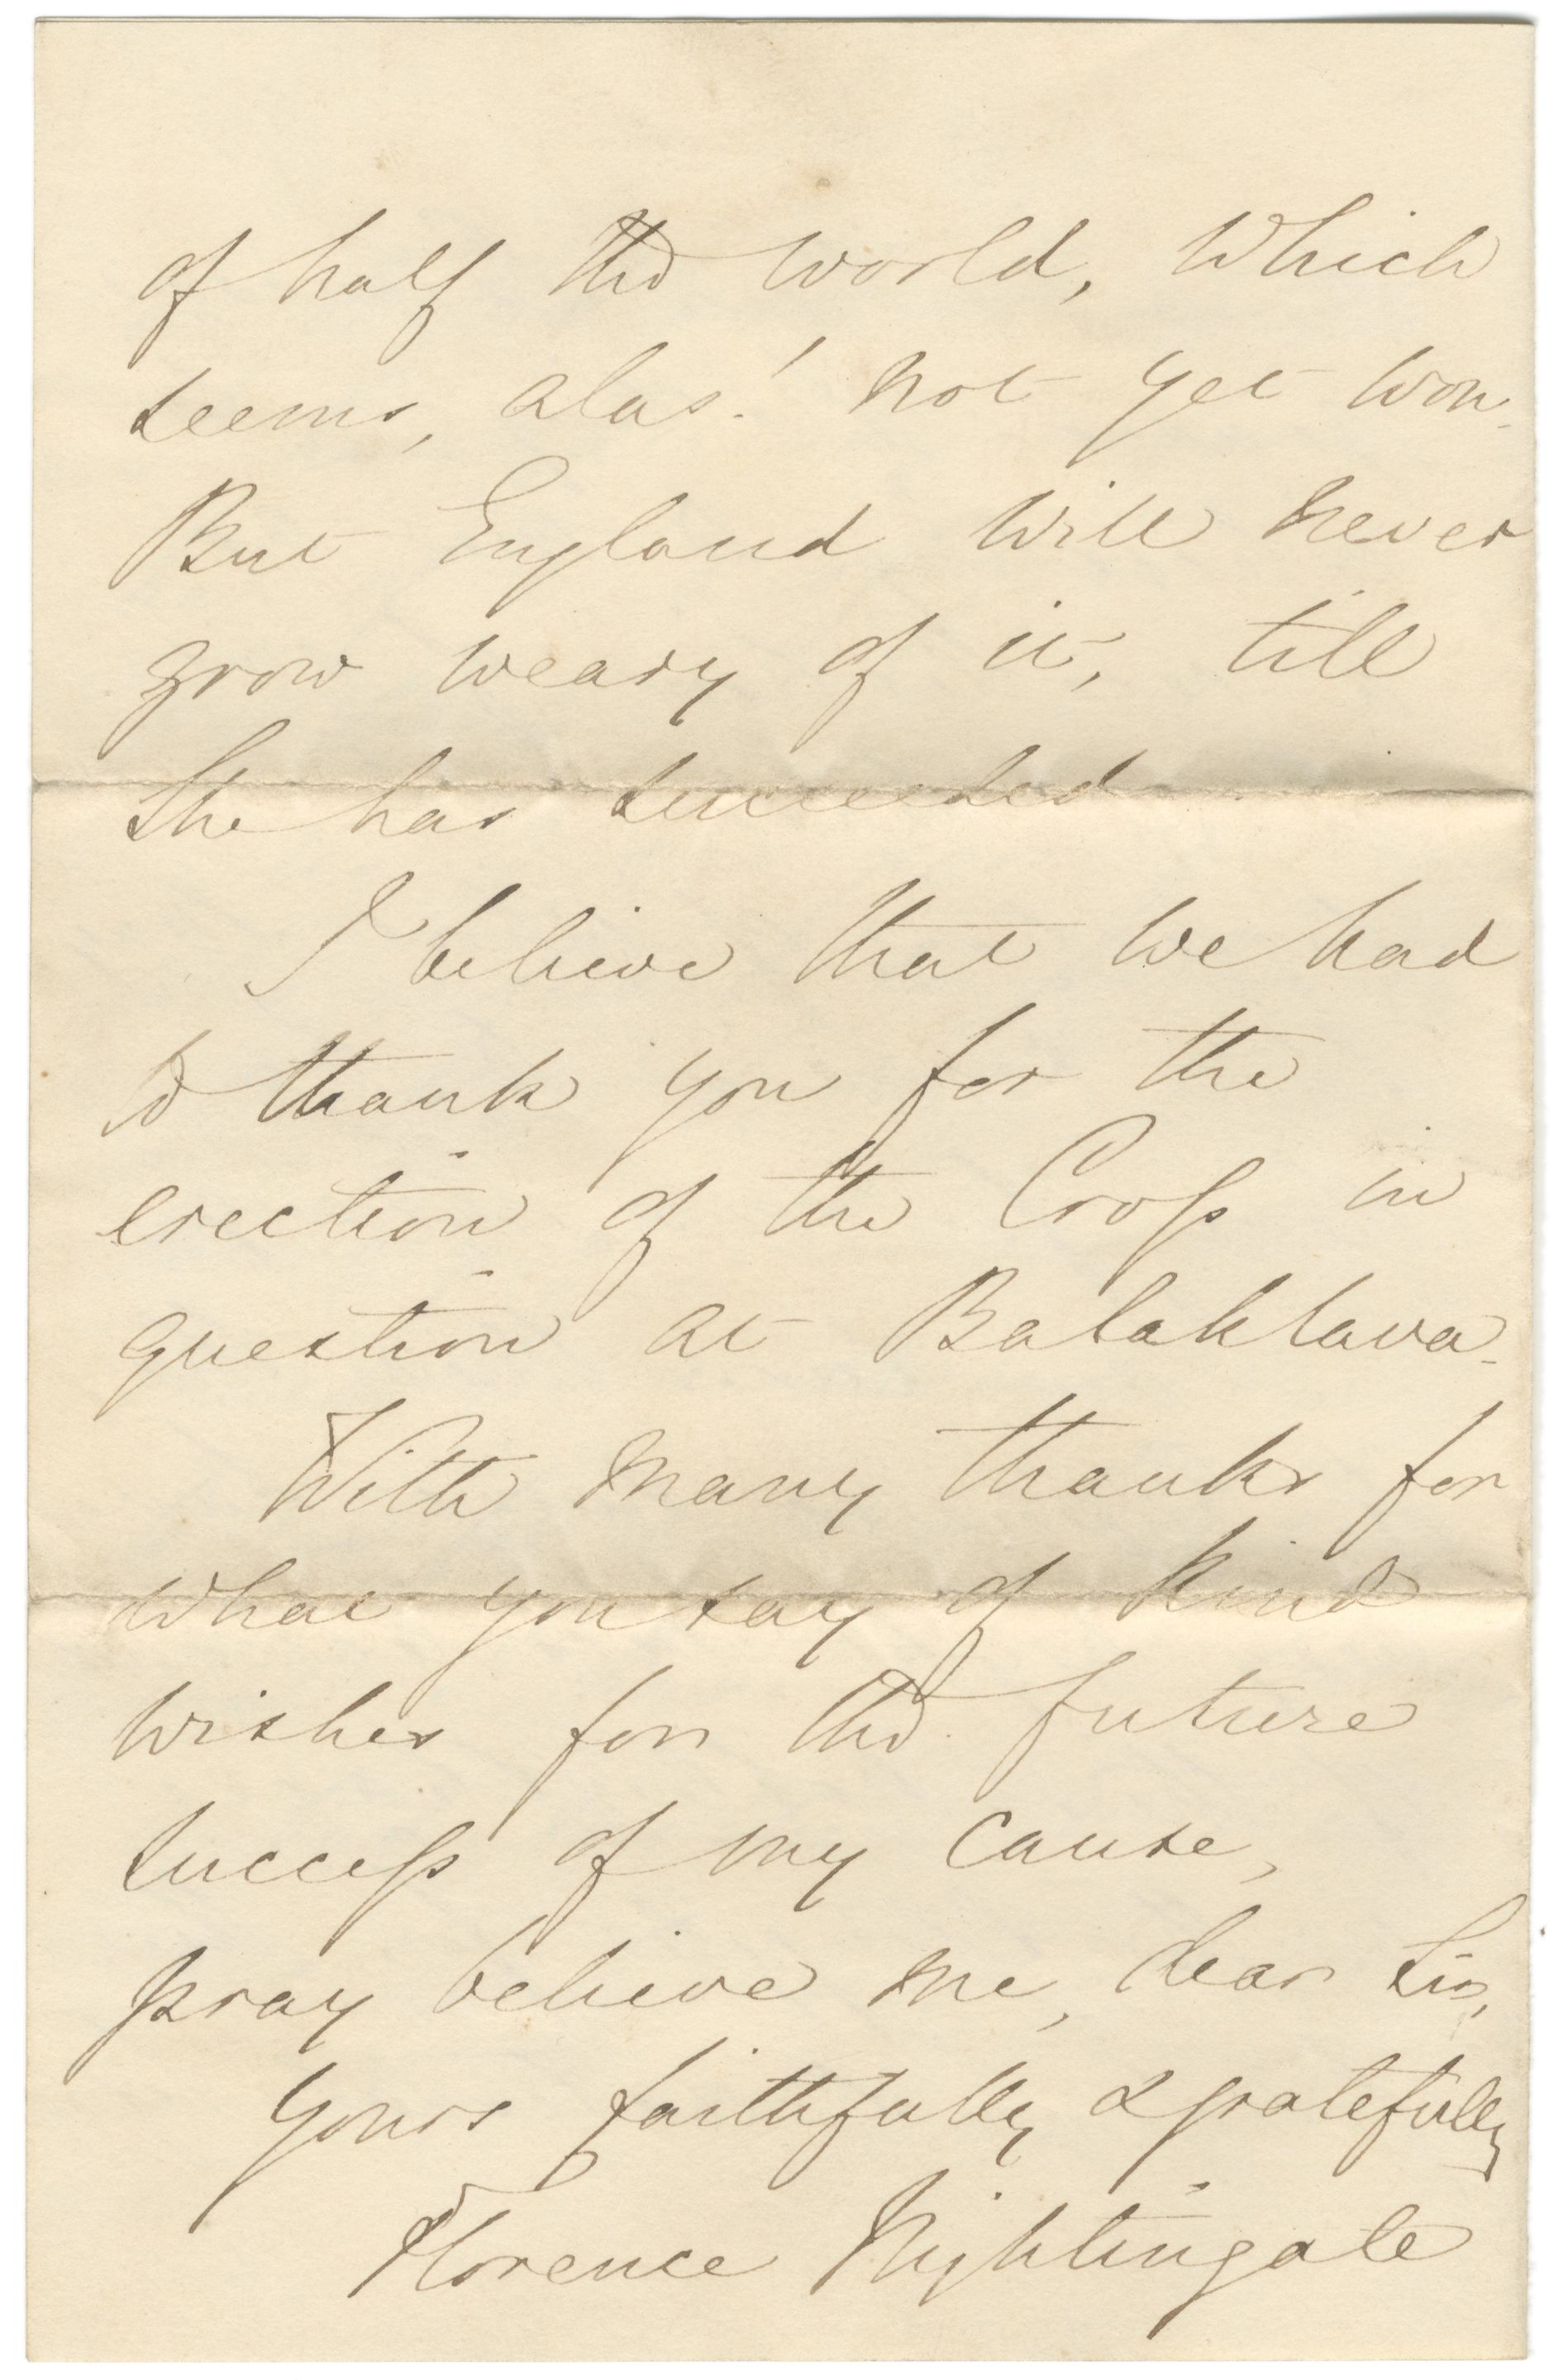 of half the world, which
seems, alas! not yet won.
But England will never
grow weary of it, till
She has succeeded.
I believe that we had
to thank you for the
erection of the Cross in
question at Balaklava.
With many thanks for
what you say of kind
wishes for the future
success of my cause,
pray believe me, dear Sir,
Yours faithfully & gratefully
Florence Nightingale